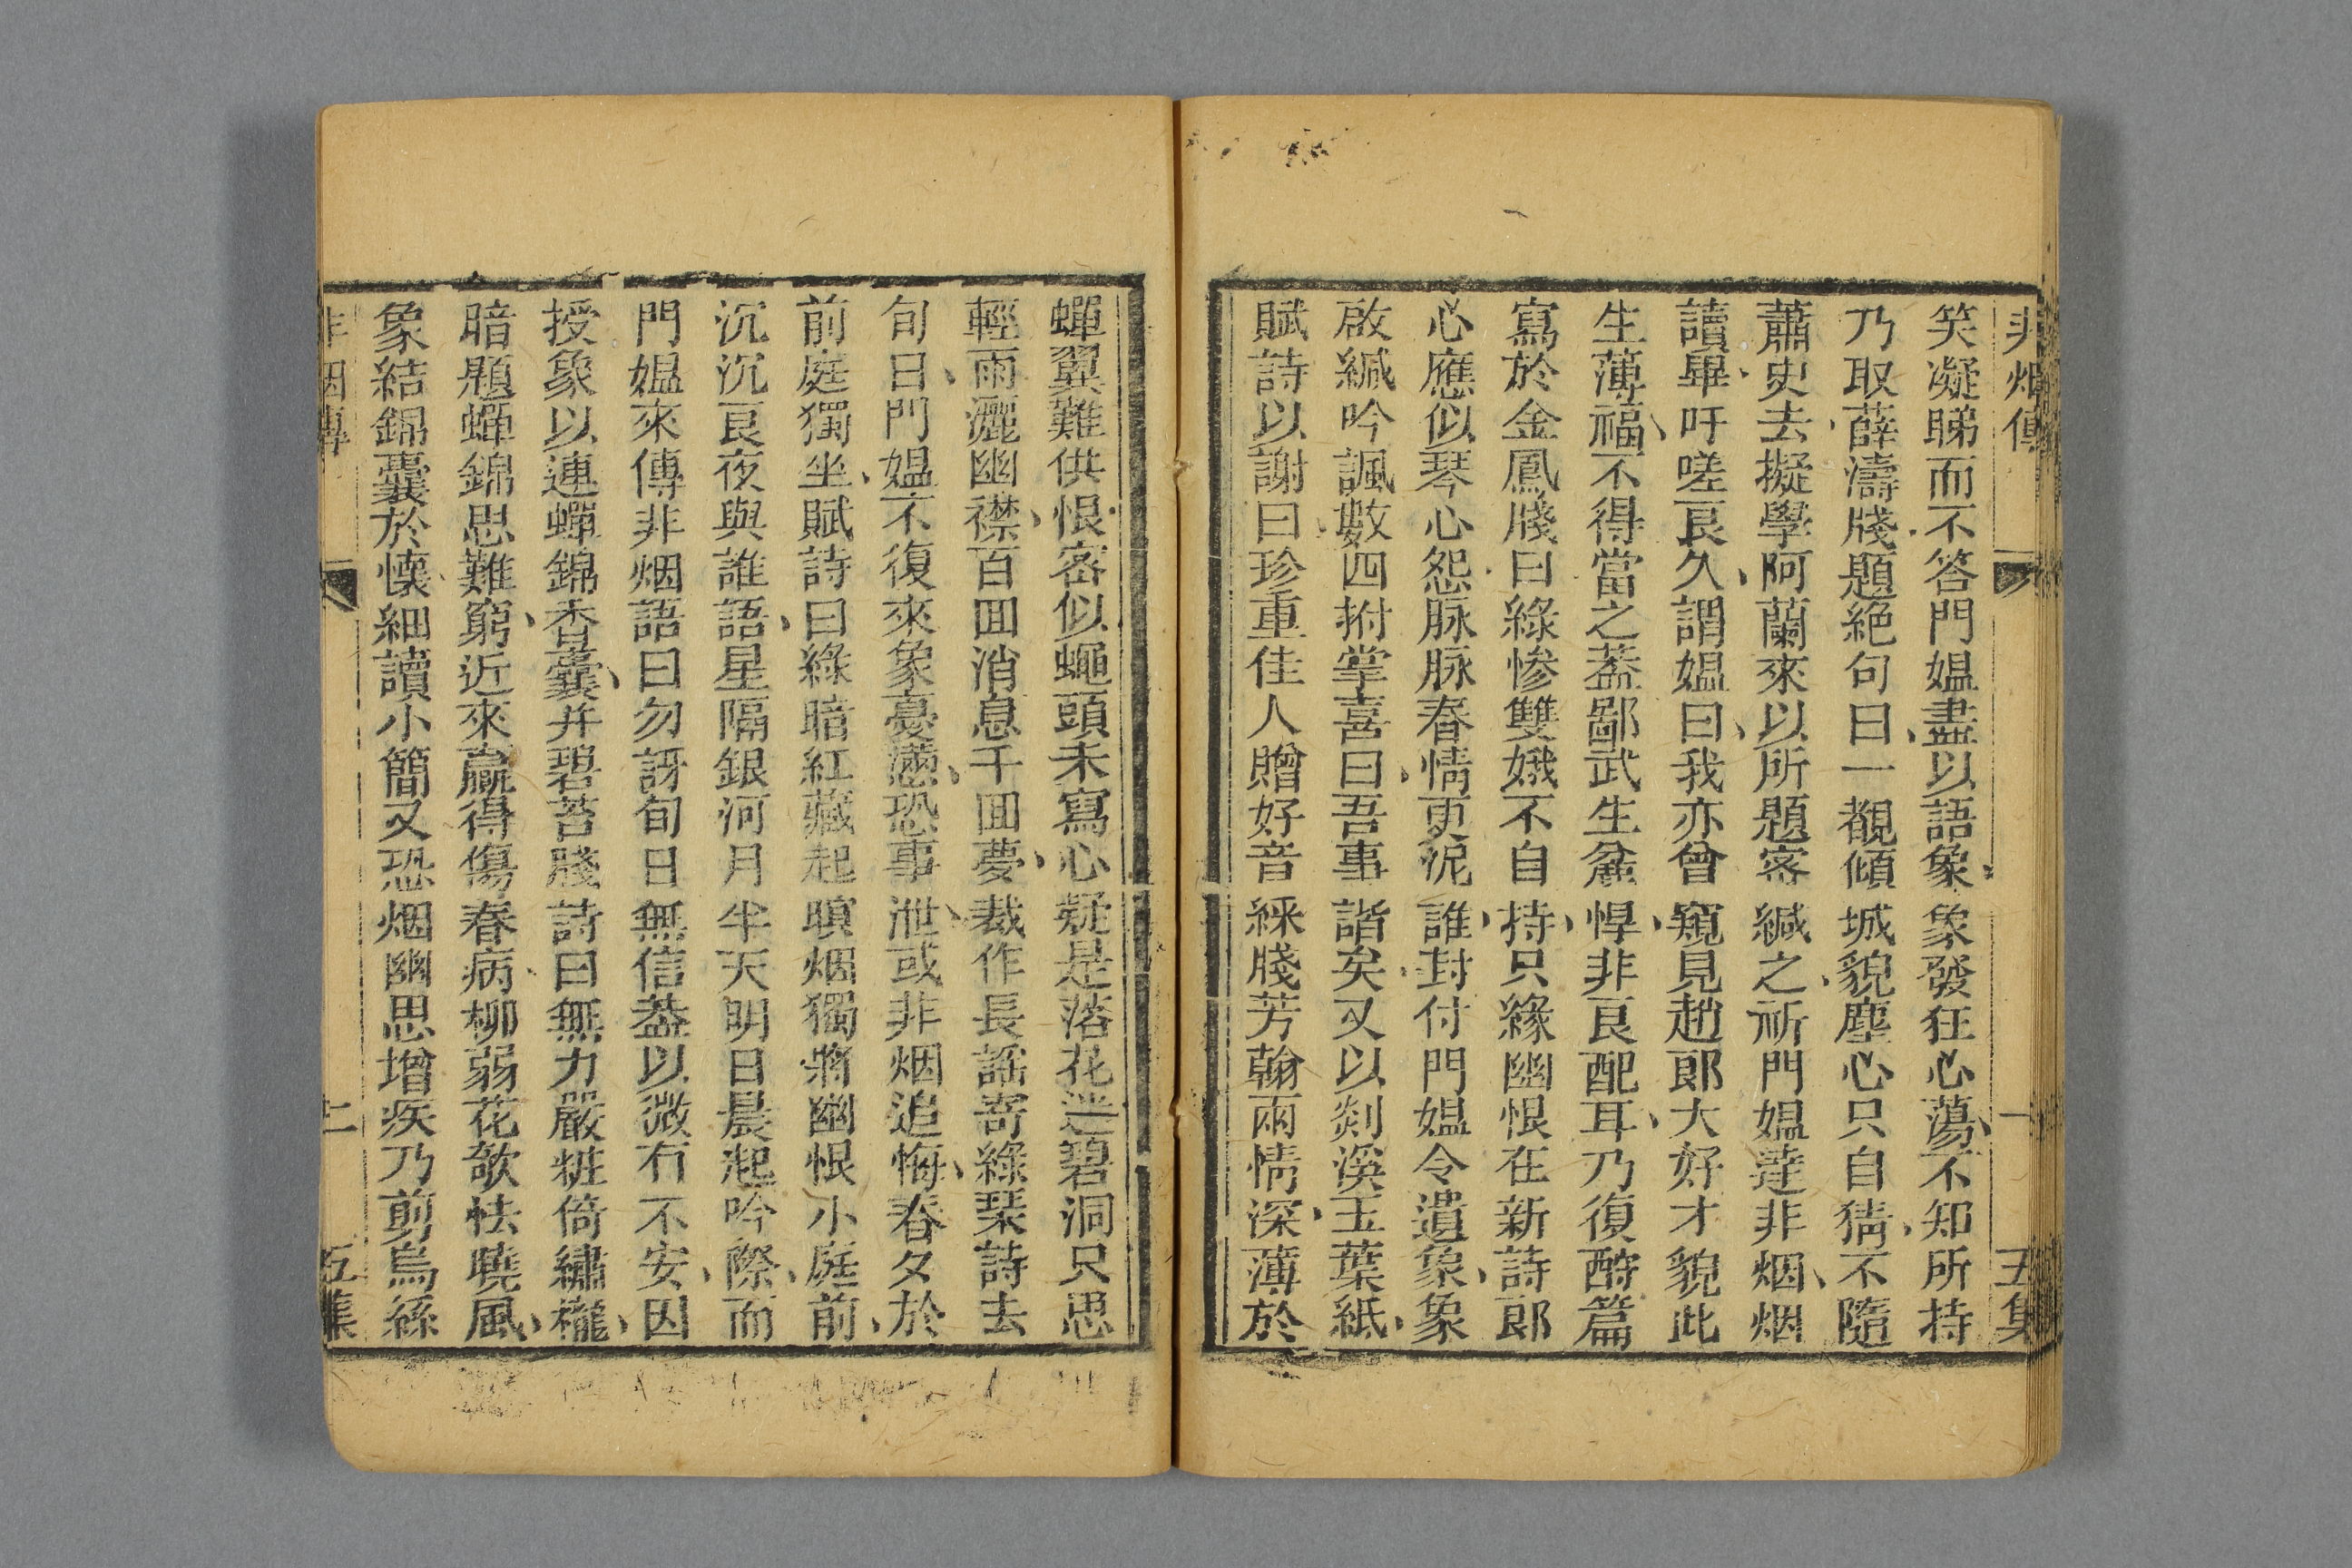 非烟傳 一 五集
笑凝睇而不答門媼盡以語象象發狂心蕩不知所持
乃取薛濤牋題絶句曰一覩傾城貌塵心只自猜不隨
蕭史去擬學阿蘭來以所題密緘之祈門媼達非烟烟
讀畢吁嗟良久謂媼曰我亦曾窺見趙郎大好才貌此
生薄福不得當之葢鄙武生麄悍非良配耳乃復酧篇
寫於金鳳牋曰綠慘雙娥不自持只緣幽恨在新詩郎
心應似琴心怨脉脉春情更泥誰封付門媼令遺象象
啟緘吟諷數四拊掌喜曰吾事諧矣又以剡溪玉葉紙
賦詩以謝曰珍重佳人贈好音綵牋芳翰兩情深薄於
蟬翼難供恨密似蠅頭未寫心疑是落花迷碧洞只思
輕雨灑幽襟百囬消息千囬夢裁作長謡寄綠琹詩去
旬日門媼不復來象憂懣恐事泄或非烟追悔春夕於
前庭獨坐賦詩曰綠暗紅藏起暝烟獨將幽恨小庭前
沉沉良夜與誰語星隔銀河月半天明日晨起吟際而
門媼來傳非烟語曰勿訝旬日無信葢以微有不安因
授象以連蟬錦香囊并碧苔牋詩曰無力嚴粧倚繡櫳
暗題蟬錦思難窮近來羸得傷春病柳弱花欹怯曉風
象結錦囊於懷細讀小簡又恐烟幽思增疾乃剪烏絲
非烟傳 二 五集